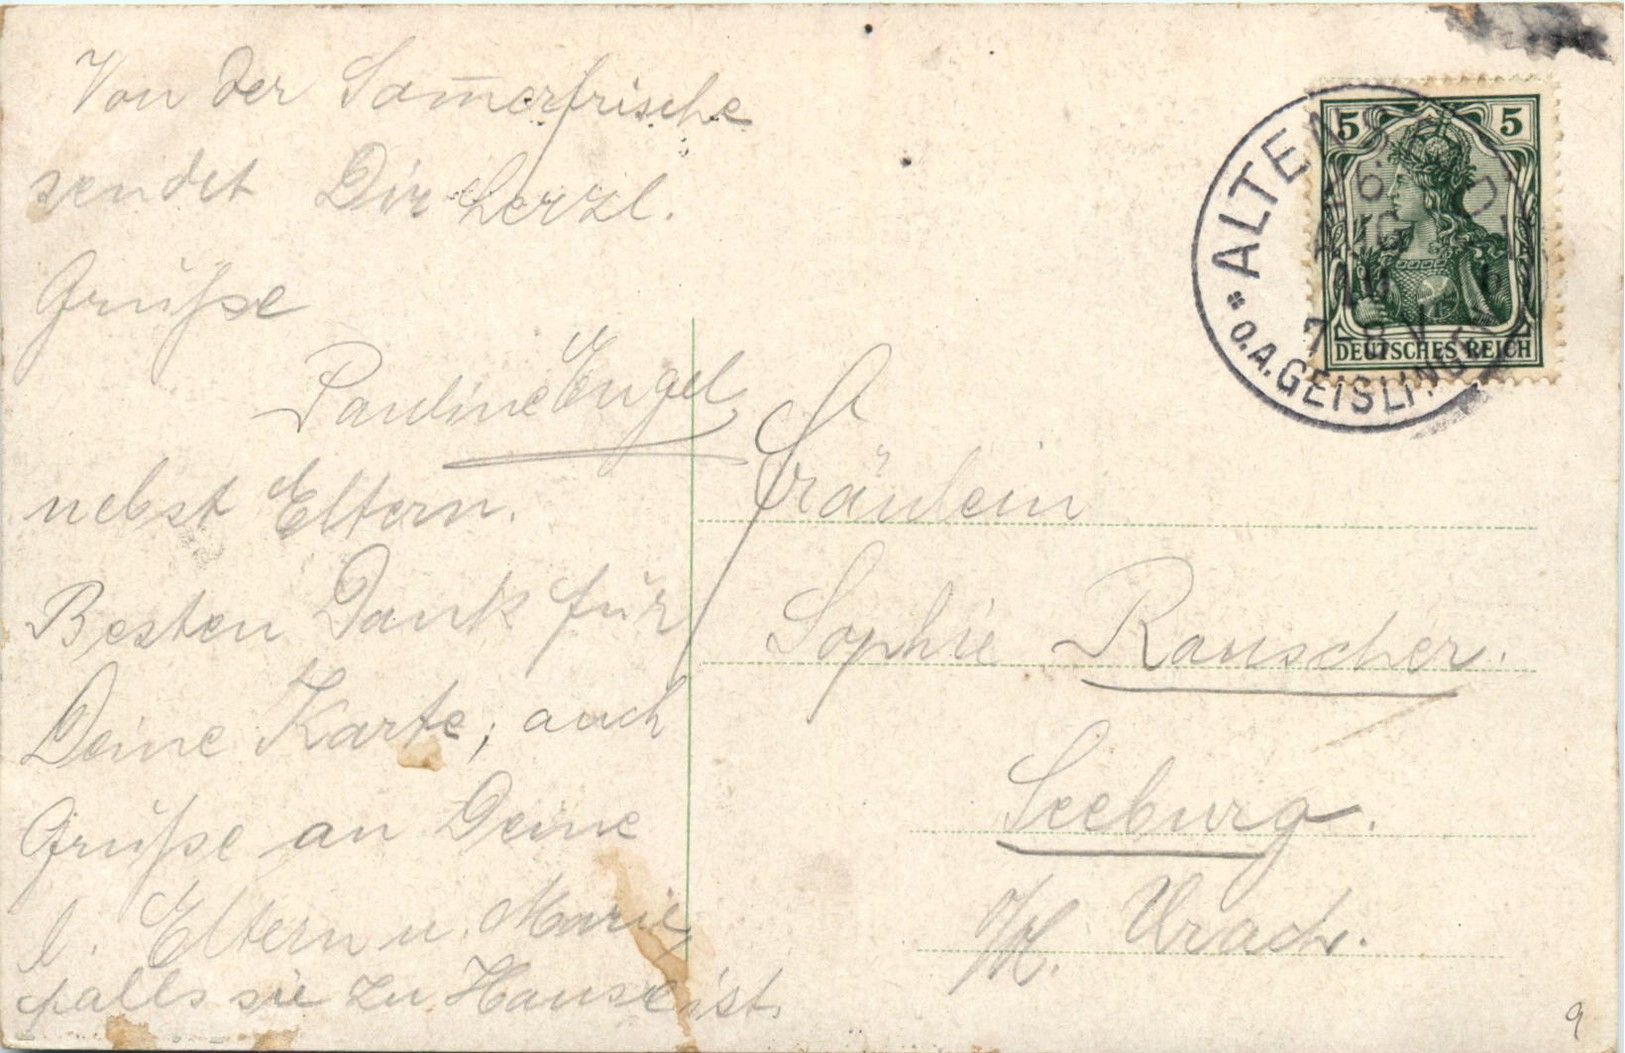 Von der Som̄erfrische
sendet Dir herzl.
Grüße
Pauline Engel
nebst Eltern.
Besten Dank für
Deine Karte, auch
Grüße an Deine
l. Eltern u. Marie,
falls sie zu Hause ist.
5 5
DEUTSCHES REICH
ALTEN
O.A. GEISLINGEN
7-8 V
Fräulein
Sophie Rauscher.
Seeburg.
Urach.
9